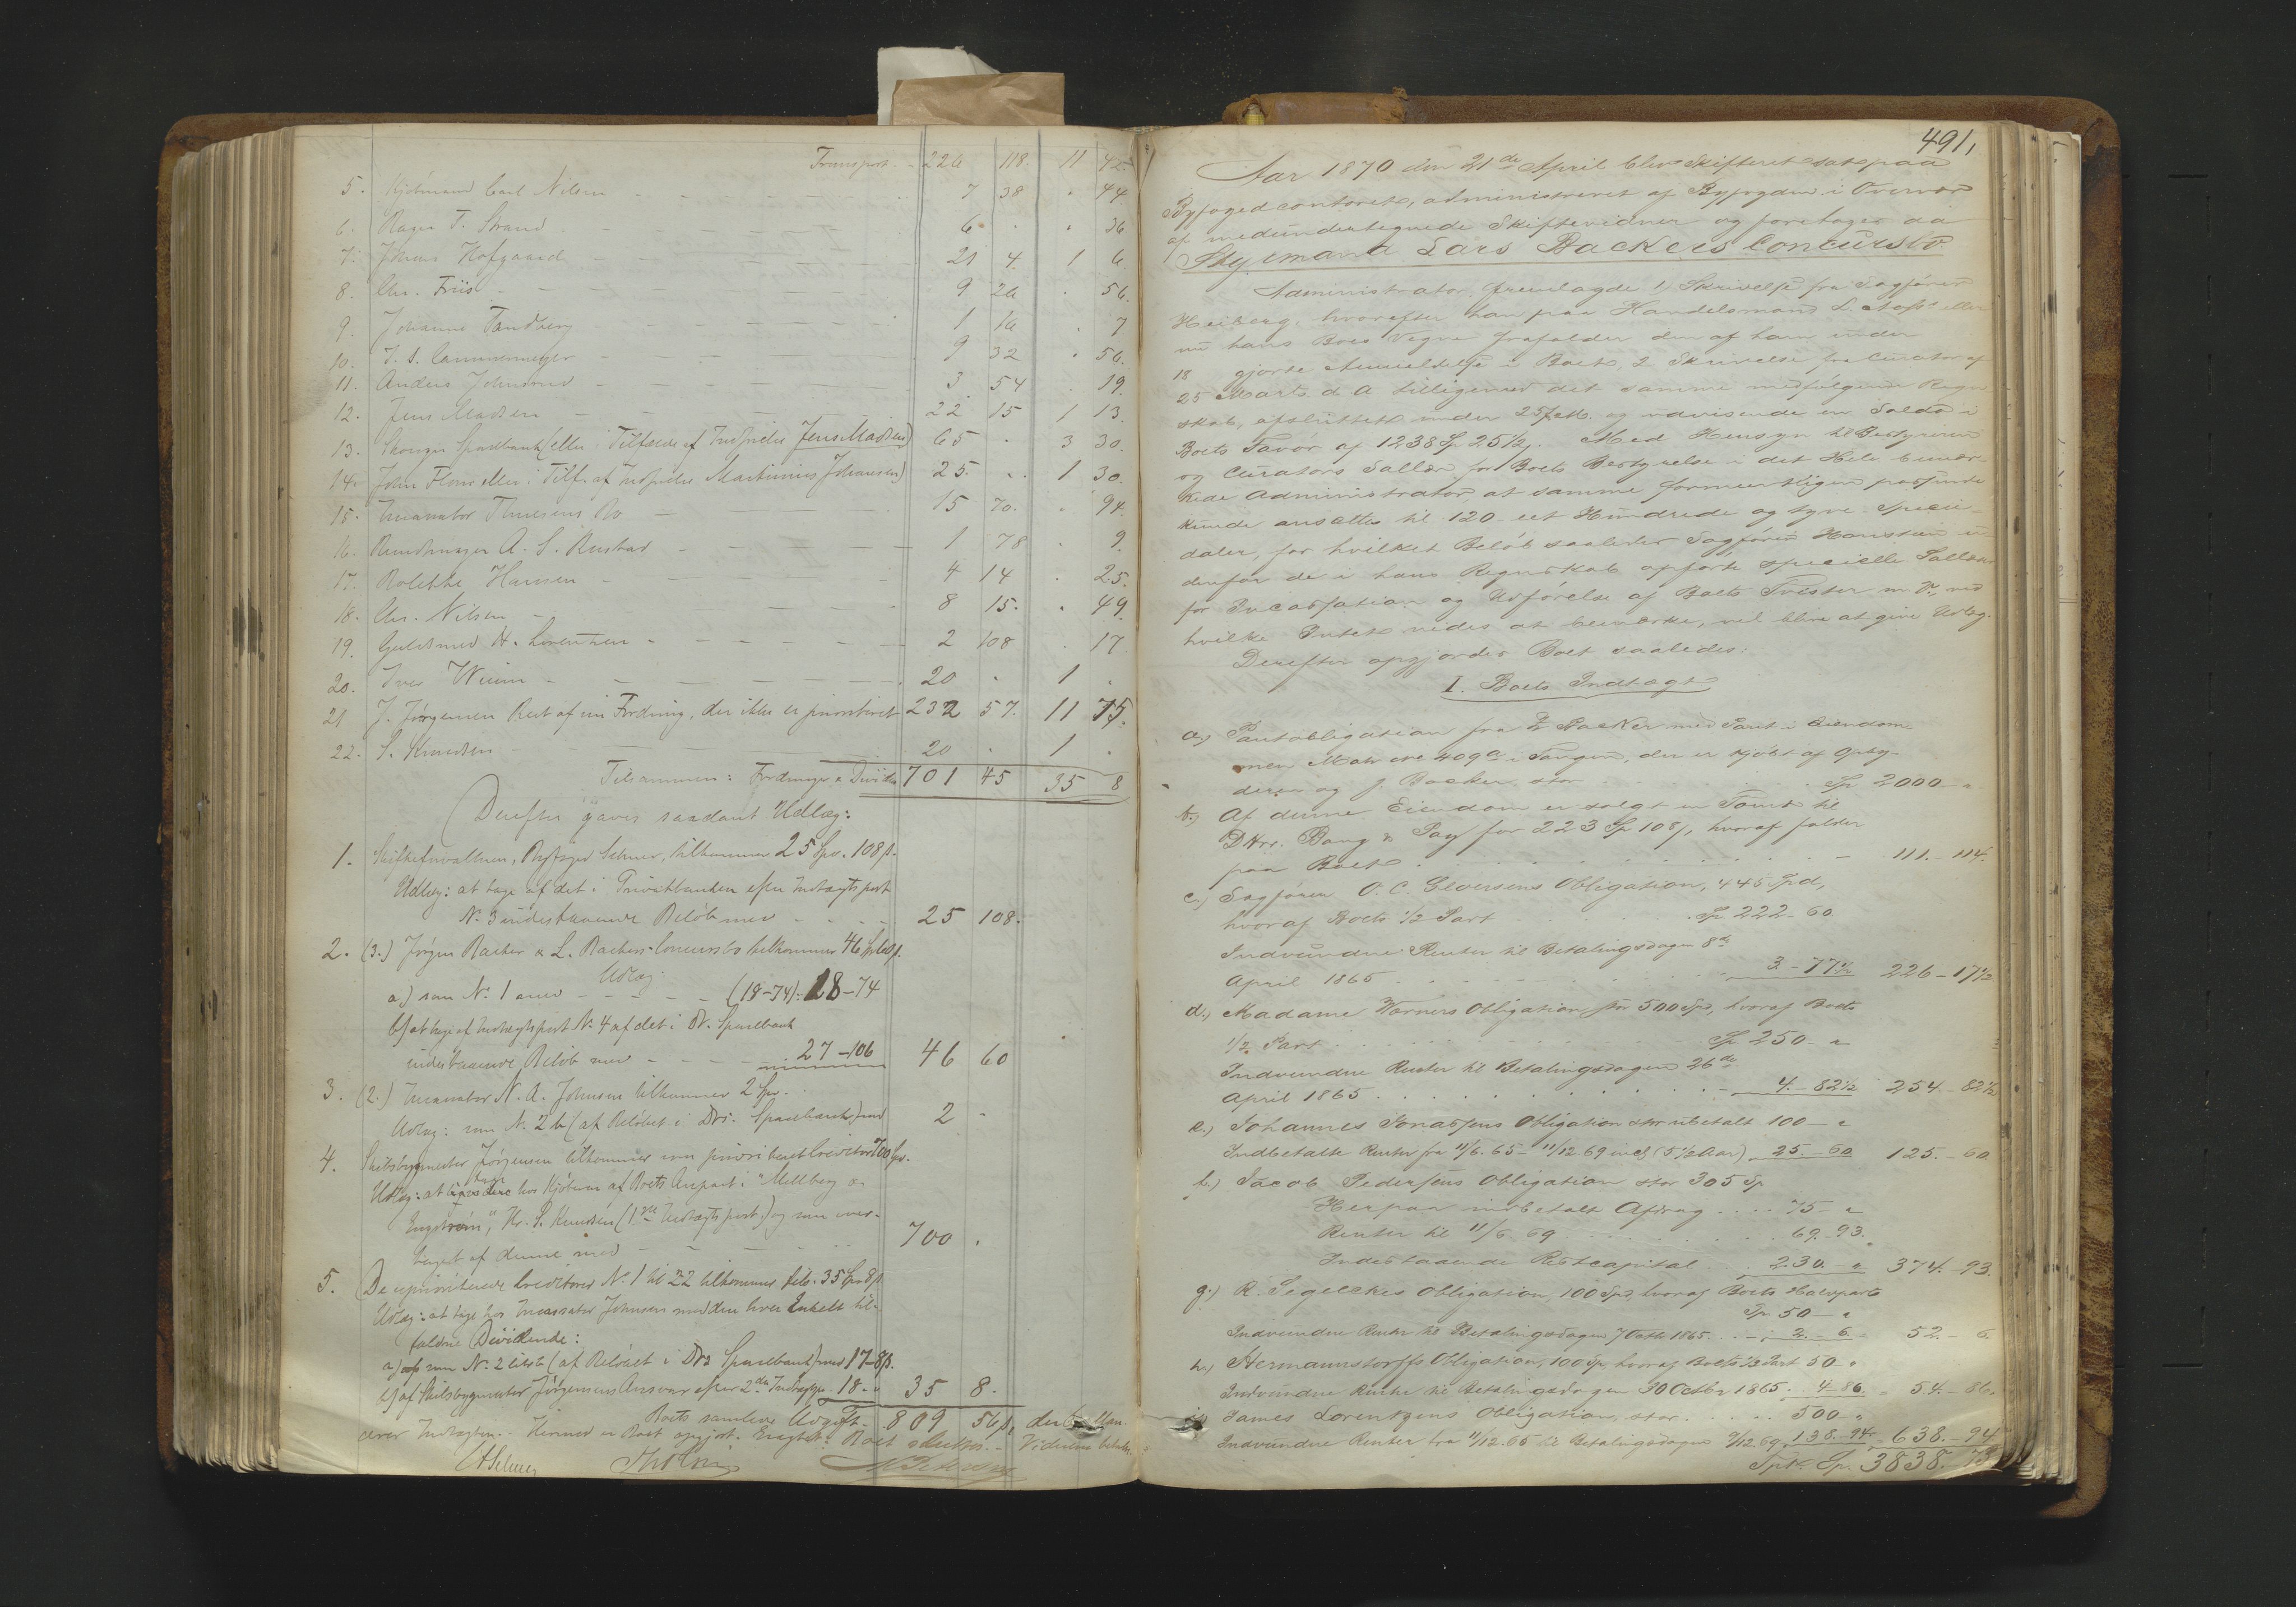 Transport 226 118. 11 42
5. Kjøbmand Carl Nilsen 7 38 44
6. Strand 6 36
7. Johnis Hofgaard 21 4. 1 6.
8. Chr. Friis 9 26 56.
9. Johanne Tandberg 1 16 7
10. J. S. Cammermeyer 9 32 56.
11. Anders Johnsrud 3 54 19.
12. Jens Madsen 22 15 1 13.
13. Sparebank (eller i Tilfælde af Indfrielse Jens Madsen) 65 3 30.
14. John Floer eller i Tilf. af Indfrielse Martinius Johansen) 25. 1 30.
15. Incassator Thuesens Bo 15 70. 94.
16. A. S. Rustad 1 78 9.
17. Bolette Hansen 4 14 25.
18. Chr. Nilsen 8 15. 49.
19. Guldsmed A. Lorentzen 2 108 17
20. Iver Wiium 20 1
21 J. Jørgensen Rest af sin Fordring, der ikke er prioriteret 232 57. 11 75.
22. S. Knudsen 20 1
Tilsammen: Fordringer & Divid. 701 45 35 8
Derefter gaves saadant Udlæg:
1. Skifteforvalteren, Byfoged Scheer, tilkommer 25 Spd. 108 ß.
Udlæg: at tage af det i Privatbanken efter Indtægtspost
No. 3 indestaaende Beløb med 25 108.
2. (3.) Jørgen Backer & L. Backers Concursbo tilkommer 46 Spd 60 ß.
Udlæg:
a.) som No. 1 med (18-74): 18-74
b) at tage af Indtægtspost No. 4 af det i Dr. Sparebank
indestaaende Beløb med 27-106 46 60
3. (2.) Incassator N. A. Johnsen tilkommer 2 Spd.
Udlæg: som No. 2 b (af Beløbet i Drs. Sparebank) med 2 -
4. Skibsbygmester Jørgensen tilkommer som prioriteret Creditor 700 Spd.
Udlæg: at tage hos Kjøberen af Boets Anpart i "Mellberg &
Engstrøm", Hr. S. Knudsen (1ste Indtægtspost) og som over-
taget af denne med 700.
5. De uprioriterede Creditorer No. 1 til 22 tilkommer tils. 35 Spd 8 ß
Udlæg: at tage hos Incassator Johnsen med den hver Enkelt til-
faldne Dividende:
a) som No. 2 litr b (af Beløbet i Drs Sparebank) med 17-8 ß.
b) af Skibsbygmester Jørgensens Ansvar efter 2den Indtægtsp. 18.- 35 8.
Boets samlede Udgift 809 56 ß,
Indtægten. Hermed er Boet opgjort. Boet sluttet.
491,
Aar 1870 den 21de April blev Skifteret sat paa
Byfogedcontoret, administreret af Byfogden i Overvær
af medundertegnede Skiftevidner og foretoges da
Lars Backers Concursbo.
Administrator fremlagde 1, Skrivelse fra Sagfører
Heiberg, hvorefter han paa Handelsmand L. eller
nu hans Boes Vegne frafalder den af ham under
18 gjorte Anmeldelse i Boet, 2 Skrivelse fra Curator af
25 Marts d A tilligemed det samme medfølgende Regn
skab, afsluttet under 25 og udvisende en Saldo i
Boets Favør af 1238 Sp 25½ ß. Med Hensyn til Bestyrerens
og Curators Sallær for Boets Bestyrelse i det Hele bemær-
kede Administrator, at samme formeentligen passende
kunde ansættes til 120 eet Hundrede og tyve Specie-
daler, for hvilket Beløb saaledes Sagfører
derefor de i hans Regnskab opførte specielle Sallær
for Incassation og Udførelse af Boets Tvister m. V. ved
hvilke Intet vides at bemærke, vil blive at give Udlæg.
Derefter opgjordes Boet saaledes:
I. Boets Indtægt
a) Pantobligation fra Backer med Pant i Eiendom-
men Matr No 409a i Tangen, der er kjøbt af
og J Backer, stor Sp 2000 -
b.) Af denne Eiendom er solgt en Tomt til
DHrr. Bang & Pay for 223 Sp 108 ß, hvoraf falder
paa Boet 111.-114.
c.) Sagfører O. C. Obligation, 445 Spd,
hvoraf Boets 1/2 Part Sp 222-60.
Indvundne Renter til Betalingsdagen 8de
April 1865 3-77½ 226-17½
d.) Madame Værners Obligation stor 500 Spd, hvoraf Boets
1/2 Part Sp 250 -
Indvundne Renter til Betalingsdagen 26de
April 1865 4.-82½ 254.-82½
e.) Johannes Jonassens Obligation stor ubetalt 100 -
Indbetalte Renter fra 11/6. 65 - 11/12 69 25.-60 125.-60
f.) Jacob Pedersens Obligation stor 305 Sp
Herpaa indbetalt Afdrag 75 -
Renter til 11/6 69 69.93.
Indestaaende Restcapital 230.- 374.-93.
g.) R. Segelckes Obligation, 100 Spd, hvoraf Boets Halvpart
Sp 50 -
Indvundne Renter til Betalingsdagen 7 Octb 1865 2.-6. 52.-6.
h.) Hermannstorffs Obligation, 100 Sp hvoraf Boets 1/2 Part 50 -
Indvundne Renter til Betalingsdagen 30 Octbr 1865 4-86. 54.-86.
i.) James Lorentzens Obligation, stor 500 -
Indvundne Renter fra 11/12.65 til Betalingsdagen 9/12.69 138.-94. 638.-94
Sp. 3838.-73